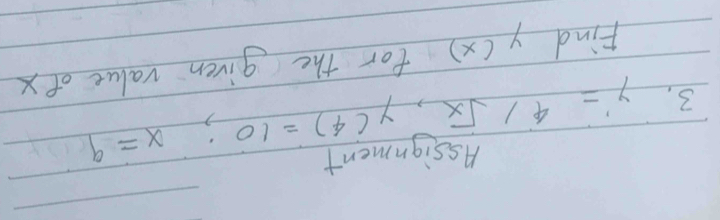 Assignment
3. y' = 4 / √x, y(4) = 10; x = 9
Find y(x) for the given value of x